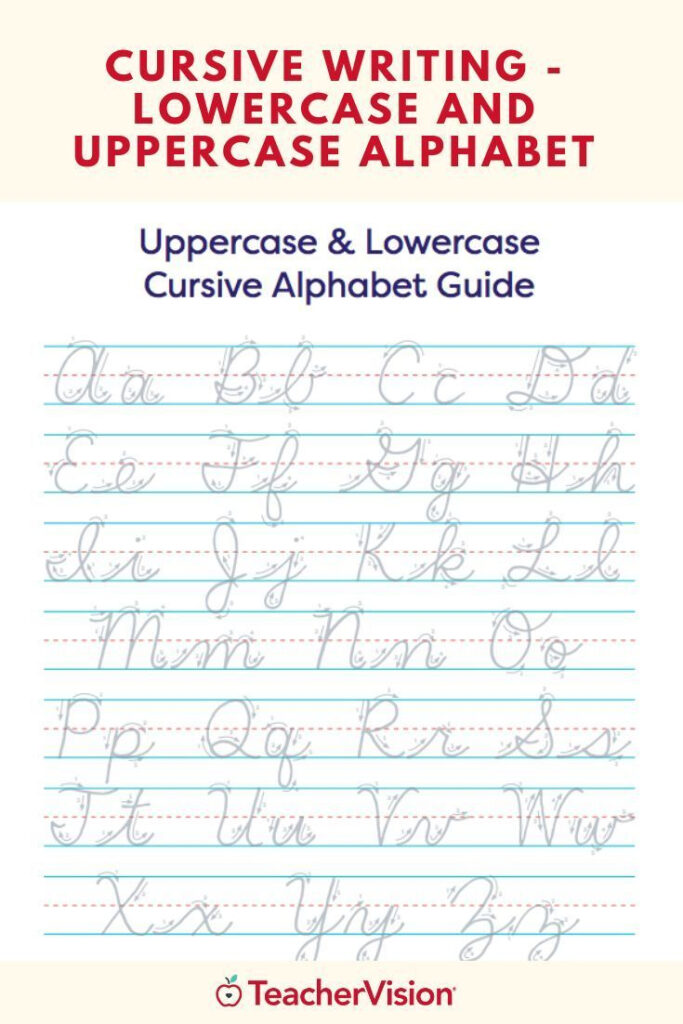 CURSIVE WRITING -
LOWERCASE AND
UPPERCASE ALPHABET
Uppercase & Lowercase
Cursive Alphabet Guide
Aa Bb Cc Dd
Ee Ff Gg Hh
Ii Jj Kk Ll
Mm Nn Oo
Pp Qq Rr Ss
Tt Uu Vv Ww
Xx Yy Zz
TeacherVision